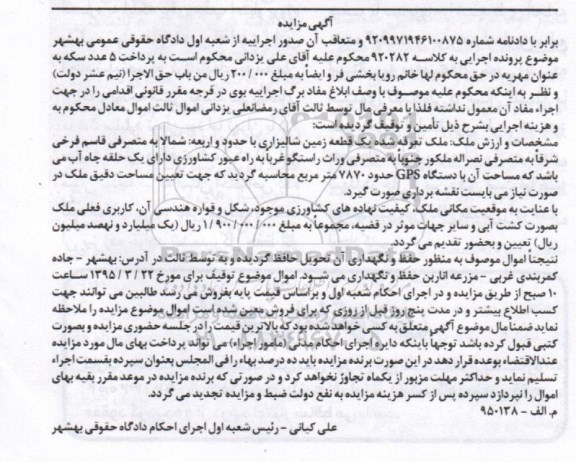 آگهی مزایده
برابر با دادنامه شماره ۹۲۰۹۹۷۱۹۴۶۱۰۰۸۷۵ و متعاقب آن صدور اجراییه از شعبه اول دادگاه حقوقی عمومی بهشهر
موضوع پرونده اجرایی به کلاسه ۹۲۰۲۸۲ محکوم علیه آقای علی یزدانی محکوم است به پرداخت ۵ عدد سکه به
عنوان مهریه در حق محکوم لها خانم رویا بخشی فر و ایضاً به مبلغ ۲۰۰/۰۰۰ ریال من باب حق الاجرا (نیم عشر دولت)
و نظر به اینکه محکوم علیه موصوف با وصف ابلاغ مفاد برگ اجراییه بوی در فرجه مقرر قانونی اقدامی را در جهت
اجراء مفاد آن معمول نداشته فلذا با معرفی مال توسط ثالث آقای رمضانعلی یزدانی اموال ثالث اموال معادل محکوم به
و هزینه اجرایی بشرح ذیل تأمین و توقیف گردیده است:
مشخصات و ارزش ملک: ملک تعرفه شده یک قطعه زمین شالیزاری با حدود و اربعه: شمالا به متصرفی قاسم فرخی
شرقاً به متصرفی نصراله ملکور جنوبا به متصرفی وراث راستگو غربا به راه عبور کشاورزی دارای یک حلقه چاه آب می
باشد که مساحت آن با دستگاه GPS حدود ۷۸۷۰ متر مربع محاسبه گردید که جهت تعیین مساحت دقیق ملک در
صورت نیاز می بایست نقشه برداری صورت گیرد.
با عنایت به موقعیت مکانی ملک، کیفیت نهاده های کشاورزی موجود، شکل و قواره هندسی آن، کاربری فعلی ملک
بصورت کشت آبی و سایر جهات موثر در قضیه، مجموعاً به مبلغ ۱/۹۰۰/۰۰۰/۰۰۰ ریال (یک میلیارد و نهصد میلیون
ریال) تعیین و بحضور تقدیم می گردد.
نتیجتا اموال موصوف به منظور حفظ و نگهداری آن تحویل حافظ گردیده و به توسط ثالث در آدرس: بهشهر - جاده
کمربندی غربی - مزرعه انارین حفظ و نگهداری می شود. اموال موضوع توقیف برای مورخ ۲۲ / ۳ / ۱۳۹۵ ساعت
۱۰ صبح از طریق مزایده و در اجرای احکام شعبه اول و براساس قیمت پایه بفروش می رسد طالبین می توانند جهت
کسب اطلاع بیشتر و در مدت پنج روز قبل از روزی که برای فروش معین شده است اموال موضوع مزایده را ملاحظه
نماید ضمنا مال موضوع آگهی متعلق به کسی خواهد شد بود که بالاترین قیمت را در جلسه حضوری مزایده و بصورت
کتبی قبول کرده باشد توجها باینکه دایره اجرای احکام مدنی (مامور اجراء) می تواند پرداخت بهای مال مورد مزایده
عندالاقتضاء بوعده قرار دهد در این صورت برنده مزایده باید ده درصد بهاء را فی المجلس بعنوان سپرده بقسمت اجراء
تسلیم نماید و حداکثر مهلت مزبور از یکماه تجاوز نخواهد کرد و در صورتی که برنده مزایده در موعد مقرر بقیه بهای
اموال را نپردازد سپرده پس از کسر هزینه مزایده به نفع دولت ضبط و مزایده تجدید می گردد.
م. الف - ۹۵۰۱۳۸
علی کیانی - رئیس شعبه اول اجرای احکام دادگاه حقوقی بهشهر